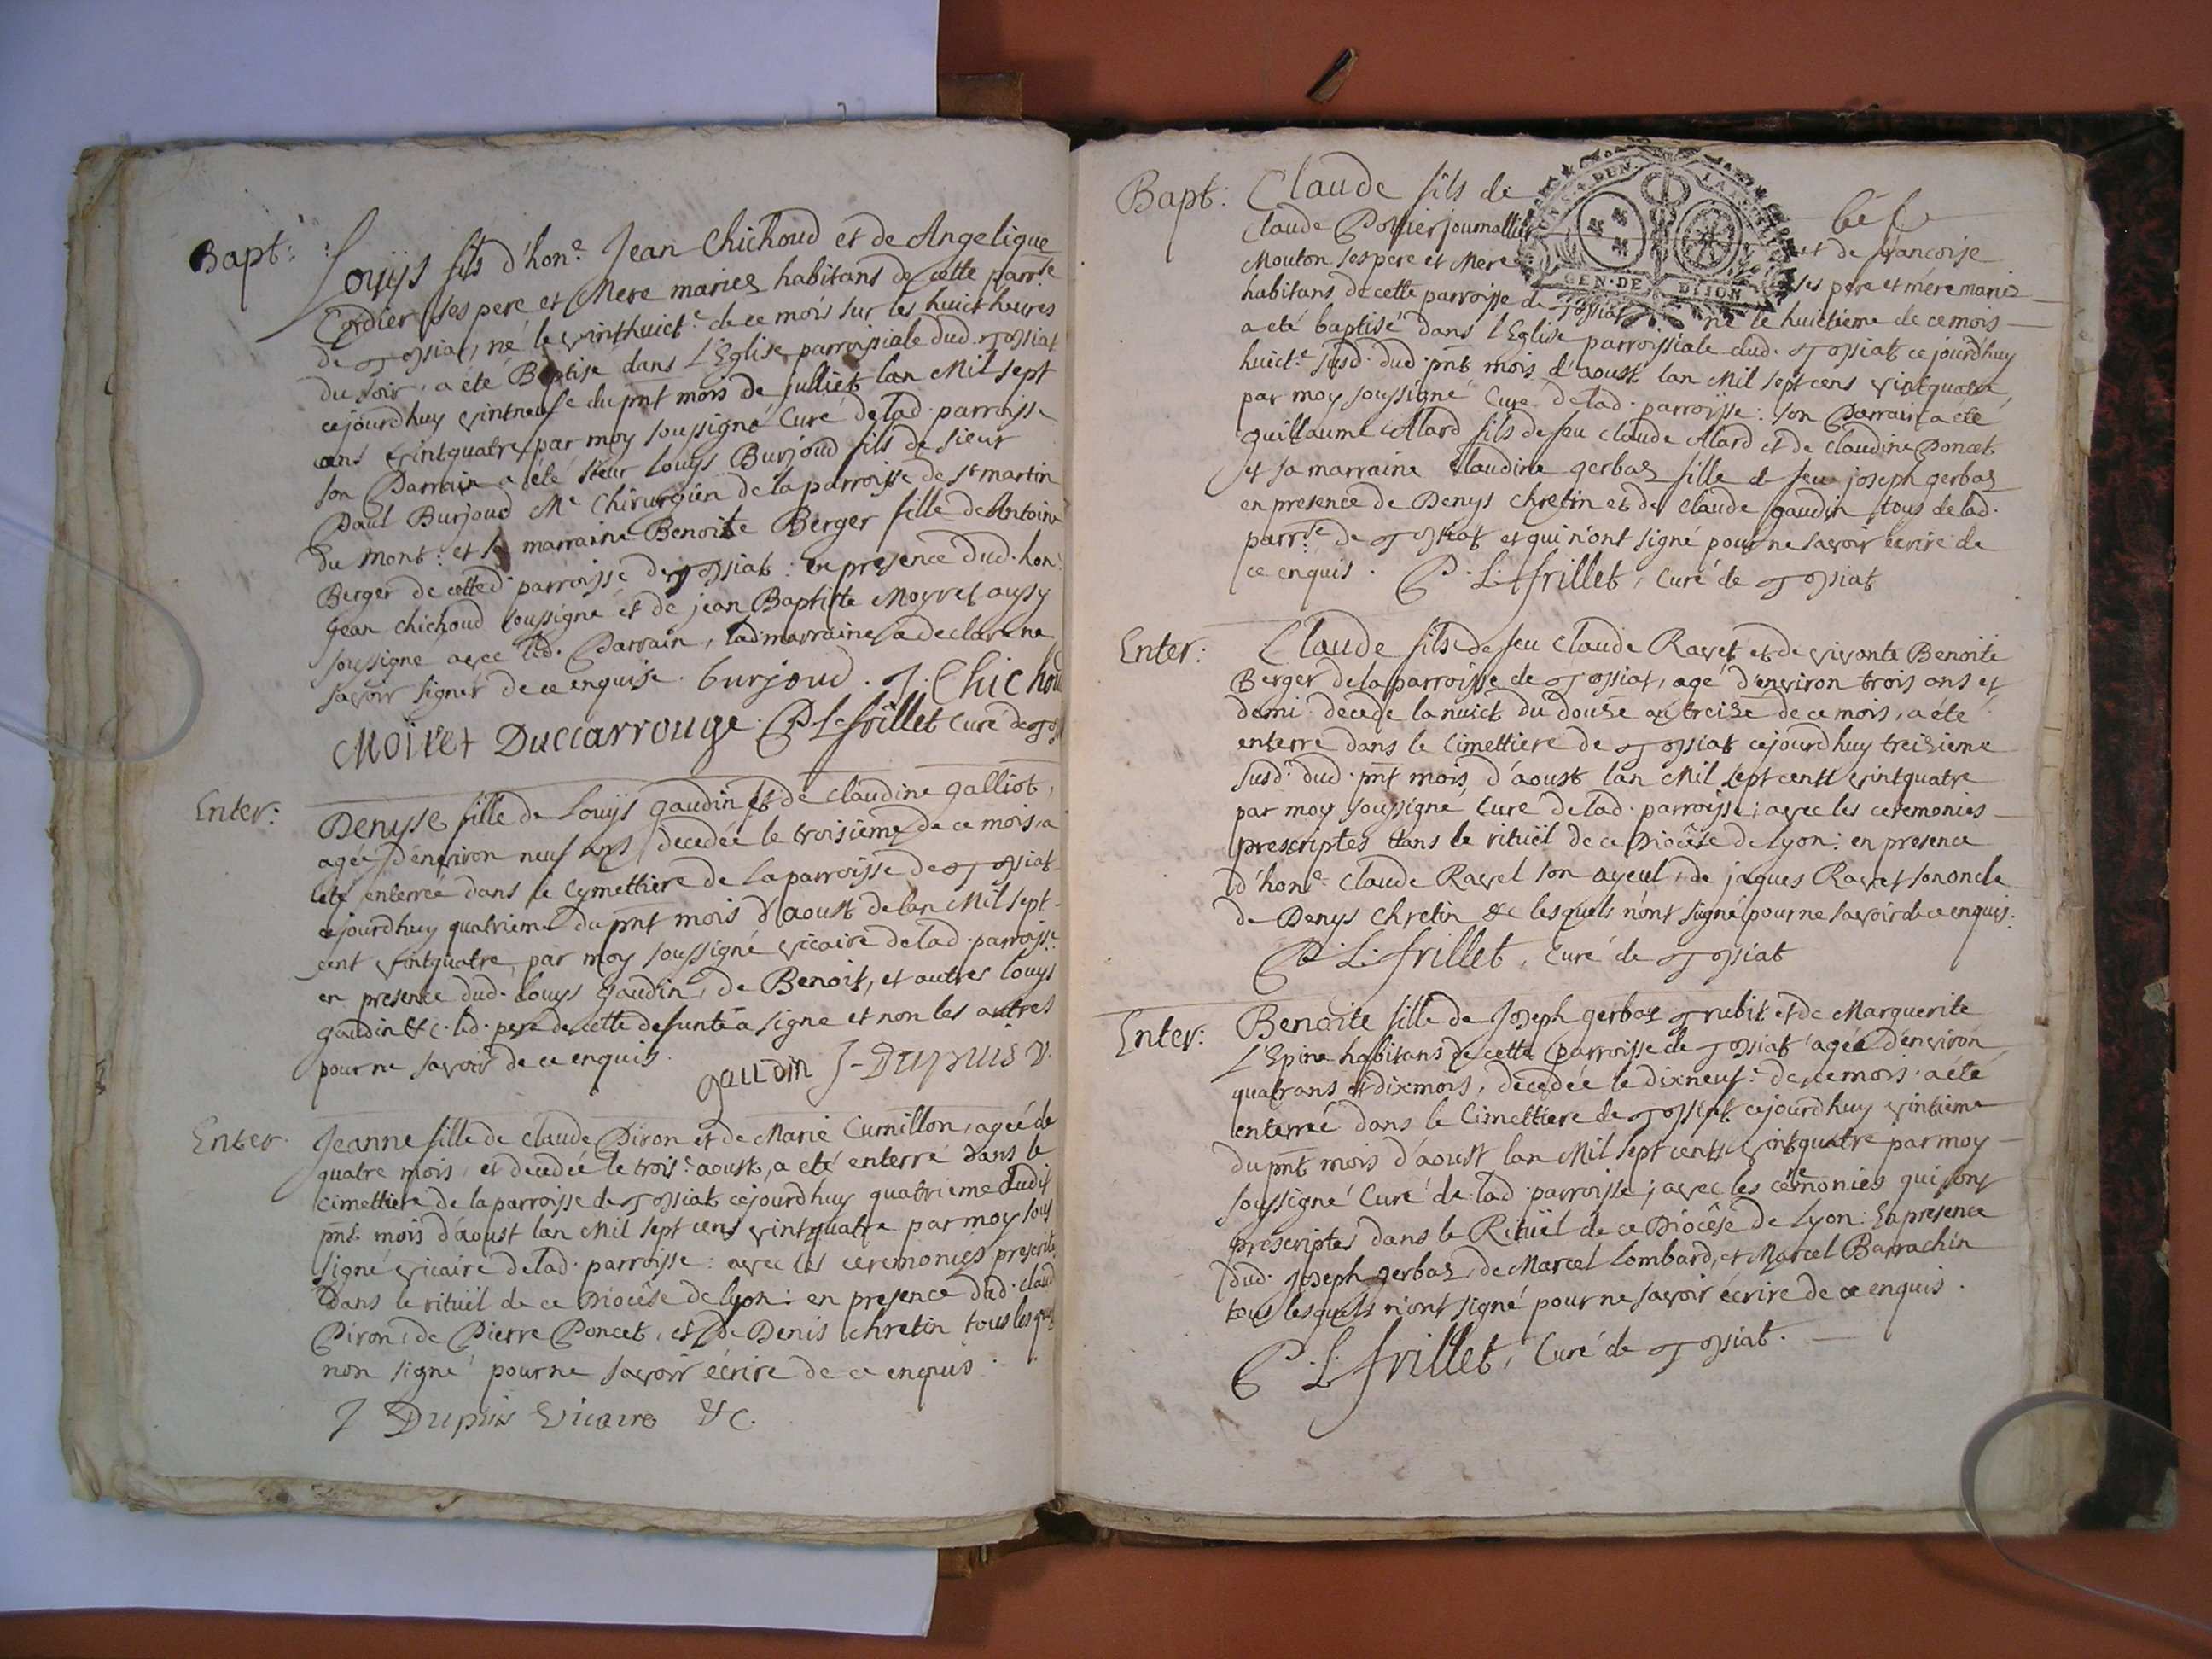 Bapt:
Louys fils d'hon.e Jean Chichoud et de Angelique
Cordier ses pere et Mere mariez habitans de cette parr.se
de Jossiat, né le vinthuict.e de ce mois sur les huict heures
du soir, a été Baptisé dans L'Eglise parroissiale dud. Jossiat
cejourd'huy vintneufe du pnt mois de julliet lan Mil sept
cens vintquatre par moy soussigné Curé de lad. parroisse
son Parrain a été sieur Louys Burjoud fils de sieur
Paul Burjoud M.e Chirurgien de la parroisse de st martin
du Mont: et sa marraine Benoite Berger fille de Antoine
Berger de cetted. parroisse de Jossiat: en presence dud. hon.
Jean Chichoud soussigné et de jean Baptiste Moyret aussy
soussigné avec led. Parrain, lad marraine a declaré ne
savoir signer de ce enquise. burjoud. J. Chichoud
Moiret Duccarrouge. P. L. frillet Curé de
Enter:
Denyse fille de Louys gaudin et de claudine galliot,
agée d'environ neuf ans decedée le troisieme de ce mois, a
été enterrée dans le Cymettiere de la parroisse de Jossiat
cejourd'huy quatrieme du pnt mois d'aoust de lan Mil sept
cent vintquatre, par moy soussigné vicaire de lad. parroisse
en presence dud. Louys gaudin, de Benoit, et autres louys
gaudin &c. led. pere de cette defunte a signé et non les autres
pour ne savoir de ce enquis.
gaudin J-Dupuis v.
Enter.
Jeanne fille de claude Piron et de Marie Cumillon, agée de
quatre mois, et decedée le trois.e aoust, a eté enterré dans le
cimettiere de la parroisse de Jossiat cejourd'huy quatrieme dudit
pnt. mois d'aoust lan Mil sept cens vintquatre par moy sous
signé vicaire de lad. parroisse: avec les ceremonies prescrite
dans le rituël de ce Diocêse de lyon: en presence dud. claud
Piron, de Pierre Poncet, et de Denis chretin tous lesquel
non signé pour ne savoir écrire de ce enquis.
J Dupuis vicaire &c.
Bapt:
Claude fils de
Claude Pottier journallier et de françoise
Mouton ses pere et Mere ses pere et mére mariéz
habitans de cette parroisse de Jossiat né le huictieme de ce mois
a eté baptisé dans l'Eglise parroissiale dud. Jossiat ce jourd'huy
huict.e susd. dud. pnt mois d'aoust lan Mil sept cens vintquatre,
par moy soussigné Curé de lad. parroisse: son Parrain a eté
guillaume Alard fils de feu claude Alard et de Claudine Poncet
et sa marraine Claudine gerbaz fille de feu joseph gerbaz
en presence de Denys chretin et de claude gaudin tous de lad.
parr.se de Jossiat et qui n'ont signé pour ne savoir écrire de
ce enquis. P. L. frillet, curé de Jossiat
Enter:
Claude fils de feu Claude Ravet et de vivante Benoite
Berger de la parroisse de Jossiat, agé d'environ trois ans et
demi decede la nuict du douze au treize de ce mois, a été
enterré dans le Cimettiere de Jossiat cejourd'huy treizieme
susd. dud. pnt mois d'aoust lan Mil sept cent vintquatre
par moy soussigné Curé de lad. parroisse; avec les ceremonies
prescriptes dans le rituël de ce Diocêse de Lyon: en presence
d'hon.e Claude Ravet son ayeul, de jaques Ravet son oncle
de Denys chretin &c lesquels n'ont signé pour ne savoir de ce enquis.
P. L. frillet, Curé de Jossiat
Enter:
Benoite fille de Joseph gerbaz grubit et de Marguerite
L'Epine habitans de cette parroisse de Jossiat agée d'environ
quatrans et dix mois, decedée le dixneuf.e de ce mois a été
enterreé dans le Cimettiere de Jossiat cejourd'huy vintieme
du pnt mois d'aoust lan Mil sept cent vintquatre par moy
soussigné Curé de lad. parroisse; avec les ceremonies qui sont
prescriptes dans le Rituël de ce Diocêse de Lyon: En presence
dud. Joseph gerbaz, de Marcel Lombard, et Marcel Barrachin
tous lesquels n'ont signé pour ne savoir écrire de ce enquis.
P. L. frillet, Curé de Jossiat.
GEN. DE DIJON